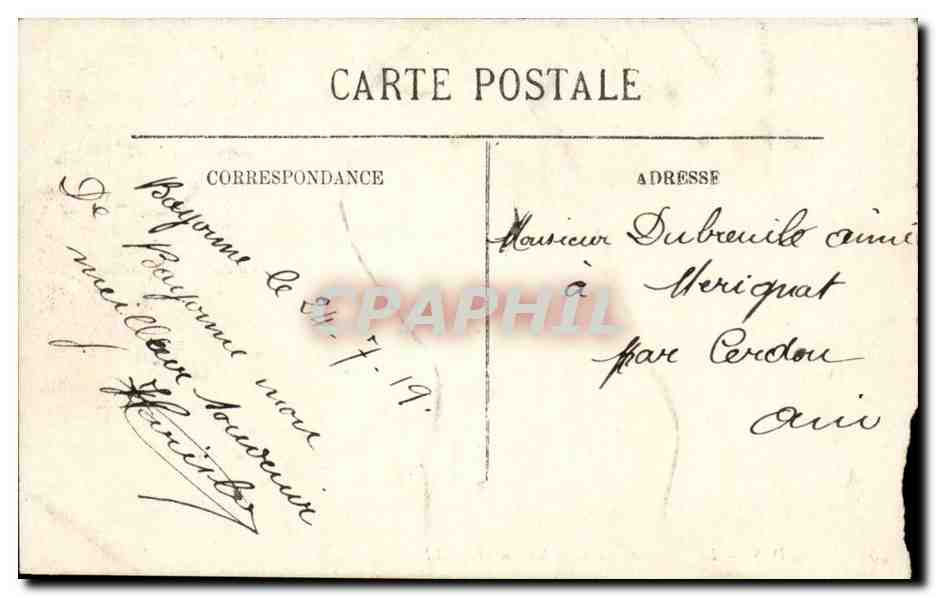 CARTE POSTALE
CORRESPONDANCE
Bayonne le 24-7-19.
De Bayonne mon
meilleur souvenir
ADRESSE
Monsieur Dubreuile aimé
à Merignat
par Cerdon
Ain
CPAPHIL